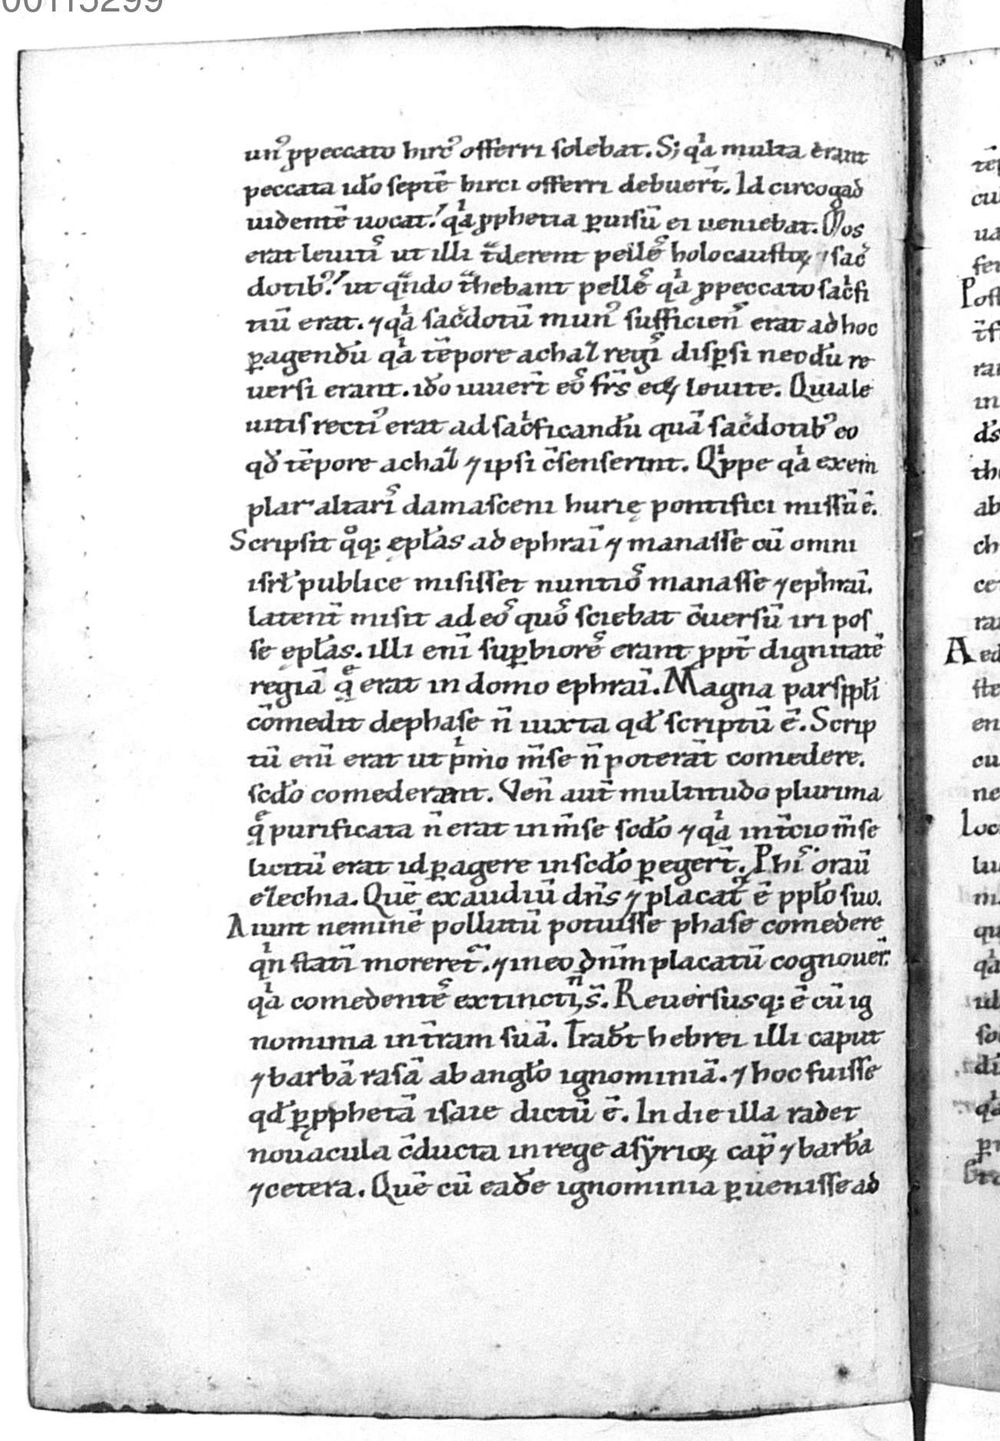 00115299
un᾽ ꝓpeccato hirc᾽ offerri solebat. S; qͣ multa erant
peccata id̄o septē hirci offerri debuer̄t. Id circo gad
uidentē uocat. qͣ ꝓphetia ꝑuisū ei ueniebat. Mos
erat leuitis ut illi tᷓderent pelles holocaustoꝝ ⁊ sac̄
dotib᾽. ut qᷓndo tᷓhebant pelles qͣ ꝓpeccato sac̍fi
tiū erat. ⁊ qͣ sac̄dotū mun᾽ sufficiens erat ad hoc
ꝑagendū qͣ tēpore achaz regis disꝑsi necdū re
uersi erant. id̄o iuuer̄t eos fr̄s eoꝝ leuite. Quia le
uitis recti᾽ erat ad sac̍ficandū quā sac̄dotib᾽ eo
qd̄ tēpore achaz ⁊ ipsi c̄senserint. Qͥppe qͣ exem
plar altaris damasceni hurię pontifici missū ē.
Scripsit qͦq; epl̄as ad ephraī ⁊ manasse cū omni
isrl̄ publice misisset nuntios manasse ⁊ ephraī.
latent̄ misit ad eos quos sciebat c̄uersū iri pos
se epl̄as. illi enī suꝑbiores erant ꝓpt̄ dignitatē
regiā qͤ erat in domo ephraī. Magna pars ppl̄i
cōmedit de phase n̄ iuxta qd̄ scriptū ē. Scrip
tū enī erat ut pͥmo m̄se n̄ poterāt comedere.
scd̄o comederent. Ven̄ aut̄ multitudo plurima
qͤ purificata n̄ erat in m̄se scd̄o ⁊ qͣ int̄cio m̄se
licitū erat id ꝑagere in scd̄o ꝑeger̄t. Phis orau̅
ezechia. Quē exaudiū dn̄s ⁊ placat᾽ ē ppl̄o suo.
Aiunt neminē pollutū potuisse phase comedere
qͥn statī moreret᷑. ⁊ in eo dn̄m placatū cognouer̄.
qͣ comedentes extincti n̄ s̄. Reuersusq; ē cū ig
nominia in t̄ram suā. Trad̄t hebrei illi caput
⁊ barbā rasā ab angl̄o ignominiā. ⁊ hoc fuisse
qd̄ ꝑ ꝓphetā isaie dictū ē. In die illa radet
nouacula c̄ducta in rege asyrioꝝ cap̄ ⁊ barbā
⁊ cetera. Quē cū ead̄e ignominia ꝑuenisse ad